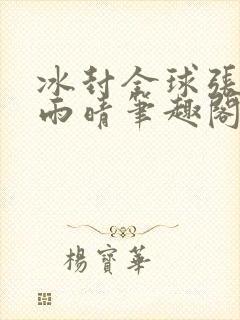 冰封全球張
雨晴筆趣閣
楊寶華